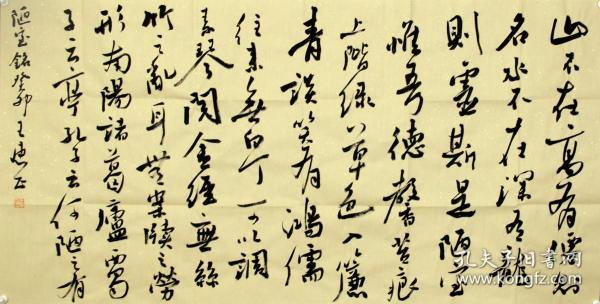 山不在高有僊則
名水不在深有龍
則靈斯是陋室
惟吾德馨苔痕
上階緑草色入簾
青談笑有鴻儒
往来無白丁可以調
素琴閱金經無絲
竹之亂耳無案牘之勞
形南陽諸葛廬西蜀
子云亭孔子云何陋之有
陋室銘癸卯王
孔夫子旧书网
kongfz.com